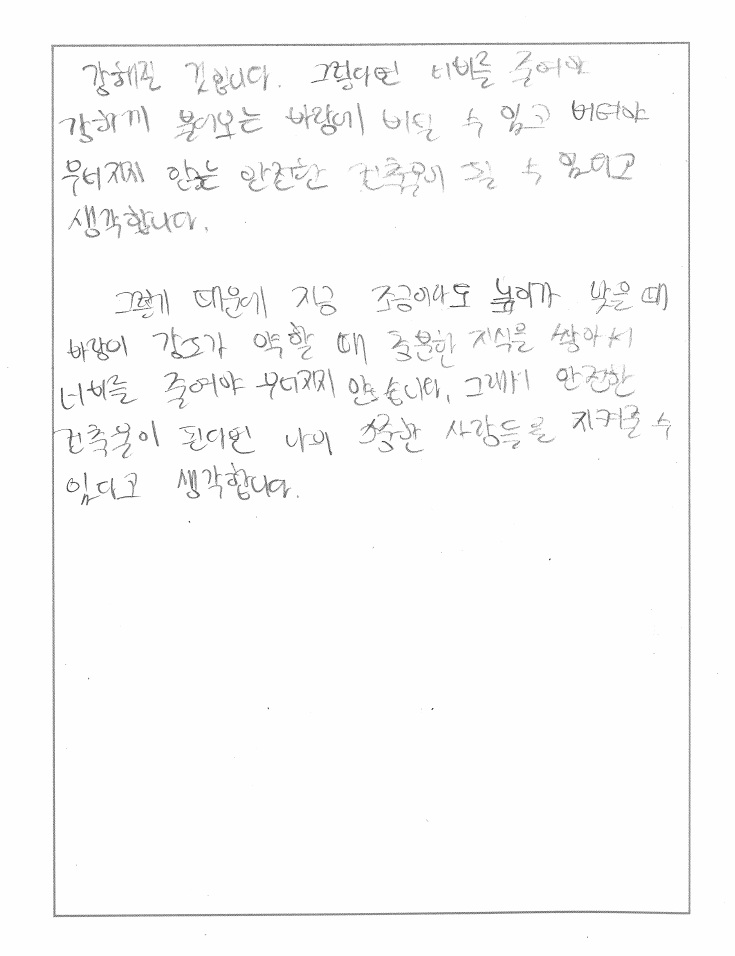 강해질 것입니다. 그렇다면 너비를 줄여야
강하게 불어오는 바람에 버틸 수 있고 버텨야
무너지지 않는 안전한 건축물이 될 수 있다고
생각합니다.
그렇게 때문에 지금 조금이라도 높이가 낮은 때
바람이 강도가 약할 때 충분한 지식을 쌓아서
너비를 줄여야 무너지지 않습니다. 그래서 안전한
건축물이 된다면 나의 소중한 사람들을 지켜줄 수
있다고 생각합니다.